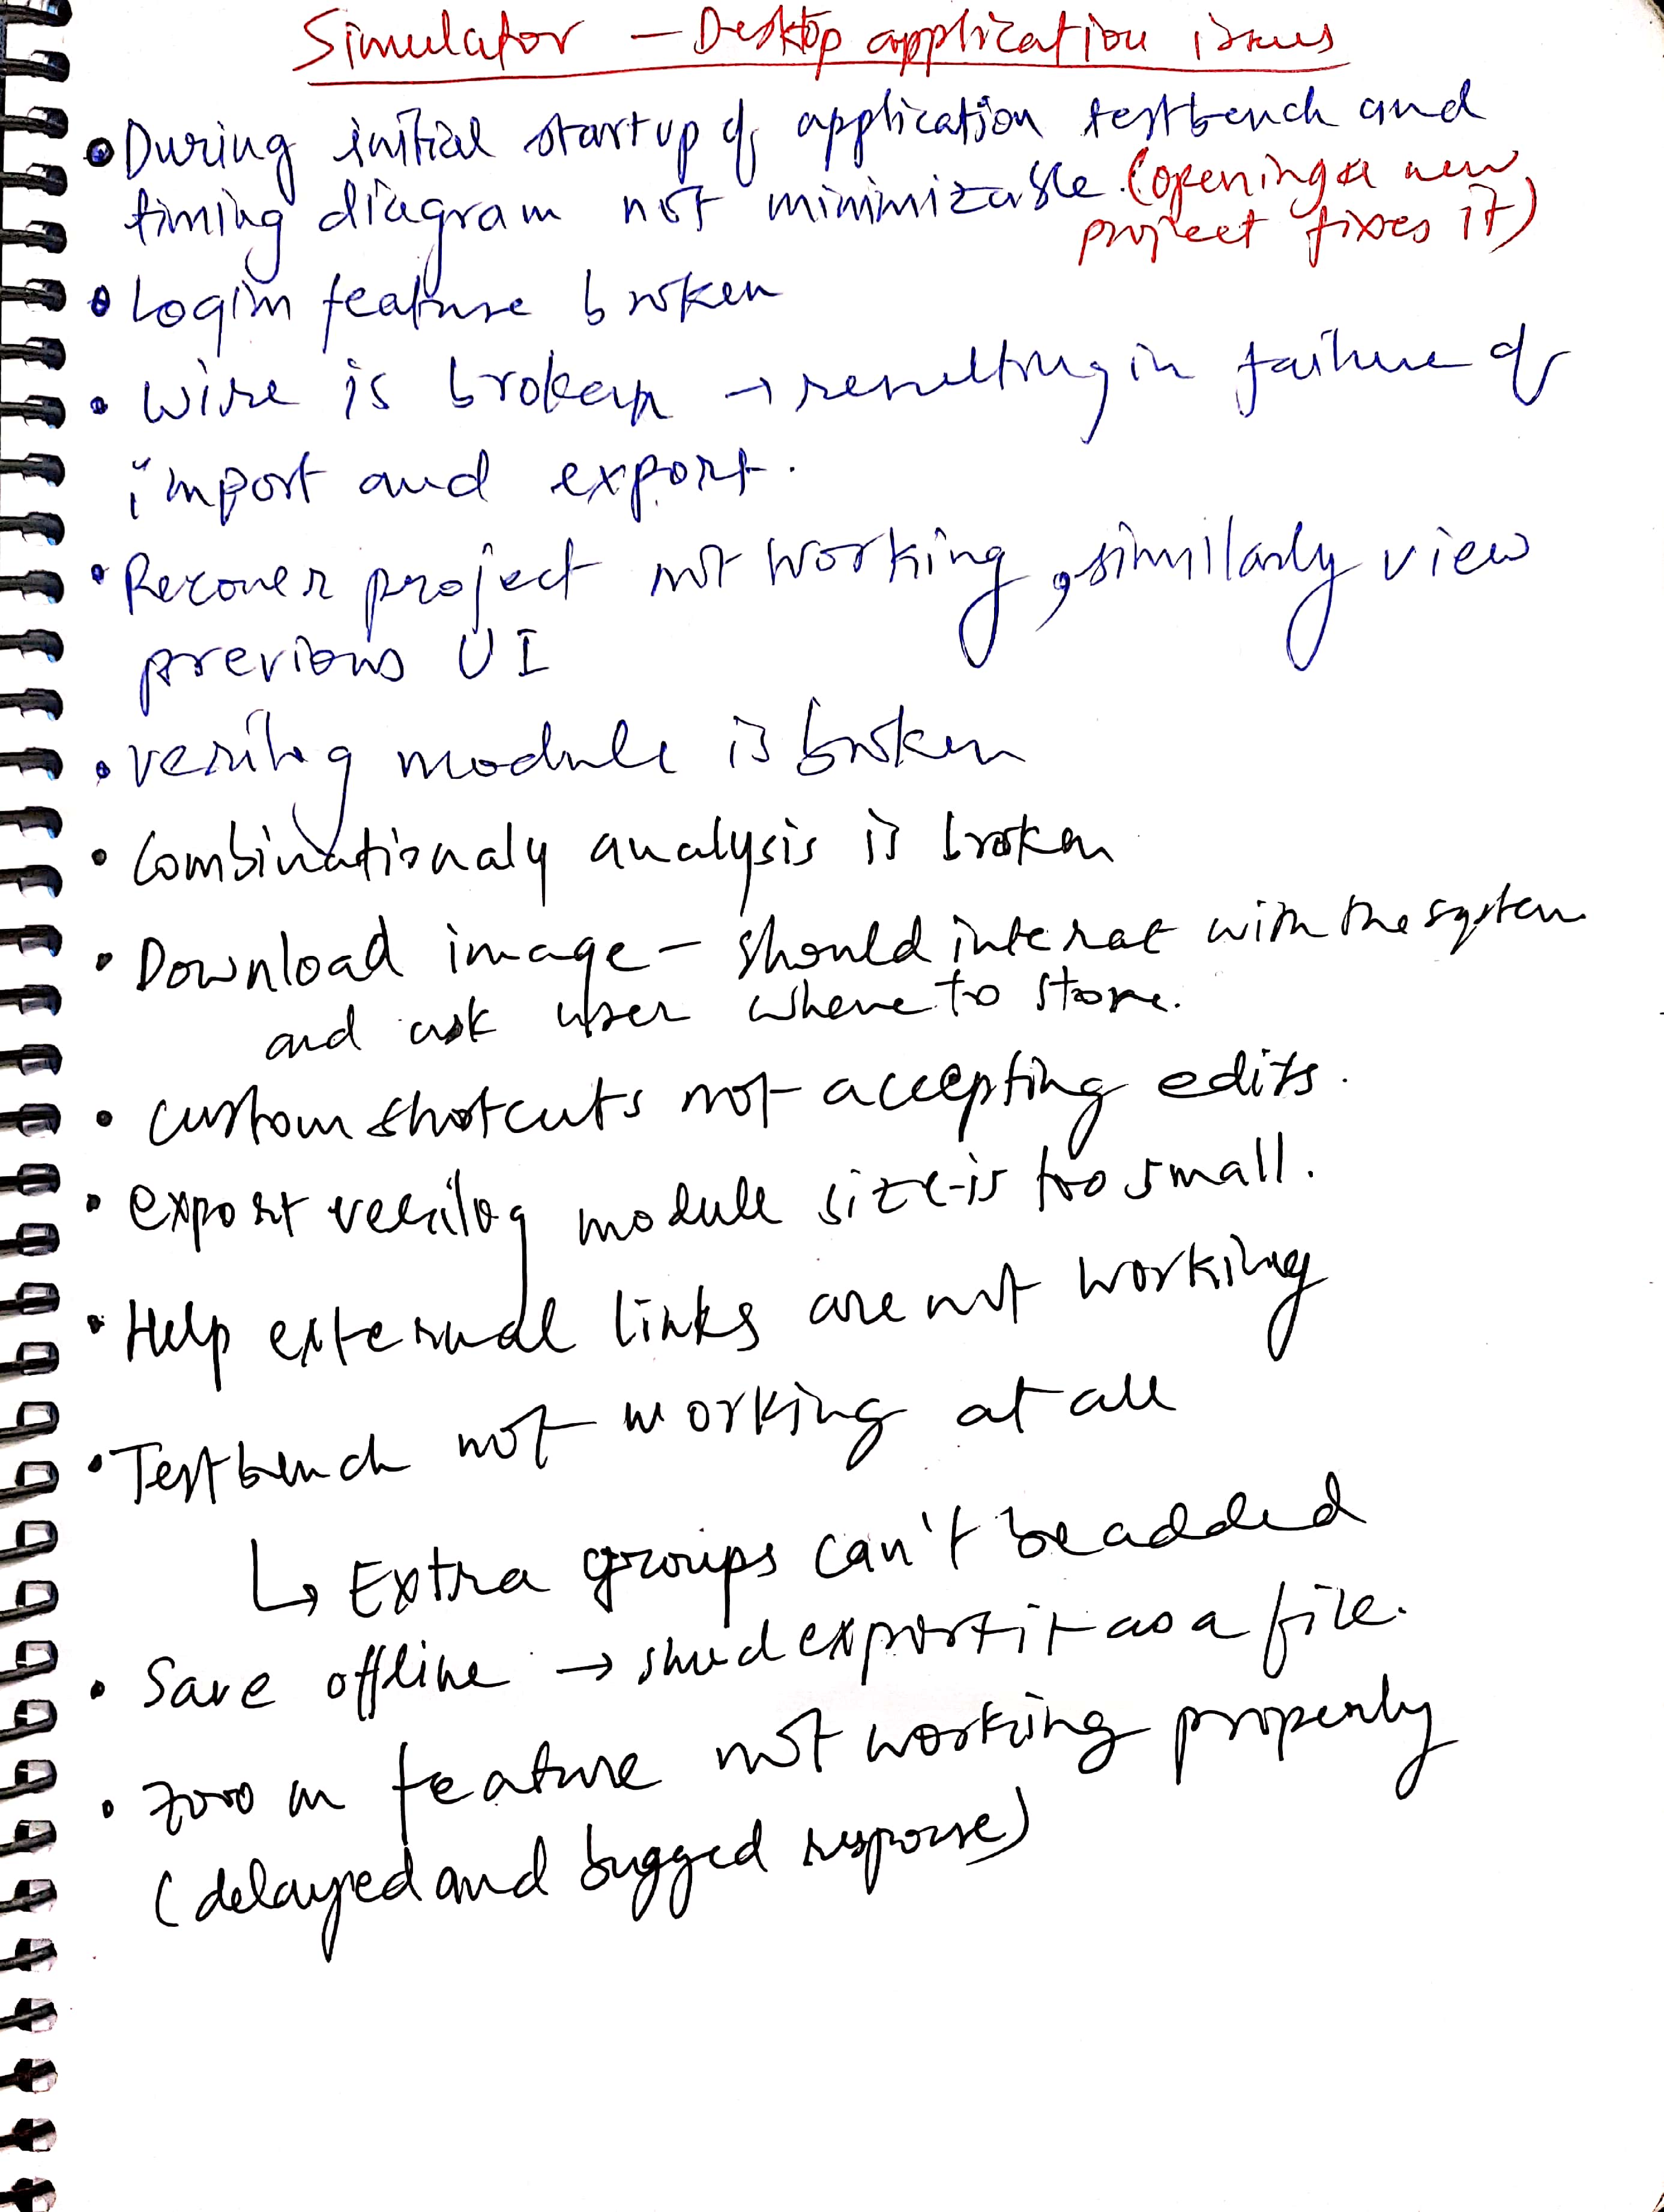 Simulator – Desktop application issues
• During initial startup of application testbench and
timing diagram not minimizable. (opening a new
project fixes it)
• Login feature broken
• Wire is broken → resulting in failure of
import and export.
• Recover project not working, similarly view
previous UI
• verilog module is broken
• Combinationaly analysis is broken
• Download image – should interat with the system
and ask user where to store.
• custom shotcuts not accepting edits.
• export verilog module size is too small.
• Help external links are not working
• Testbench not working at all
↳ Extra groups can't be added
• Save offline → shud export it as a file.
• zoom feature not working properly
(delayed and bugged response)